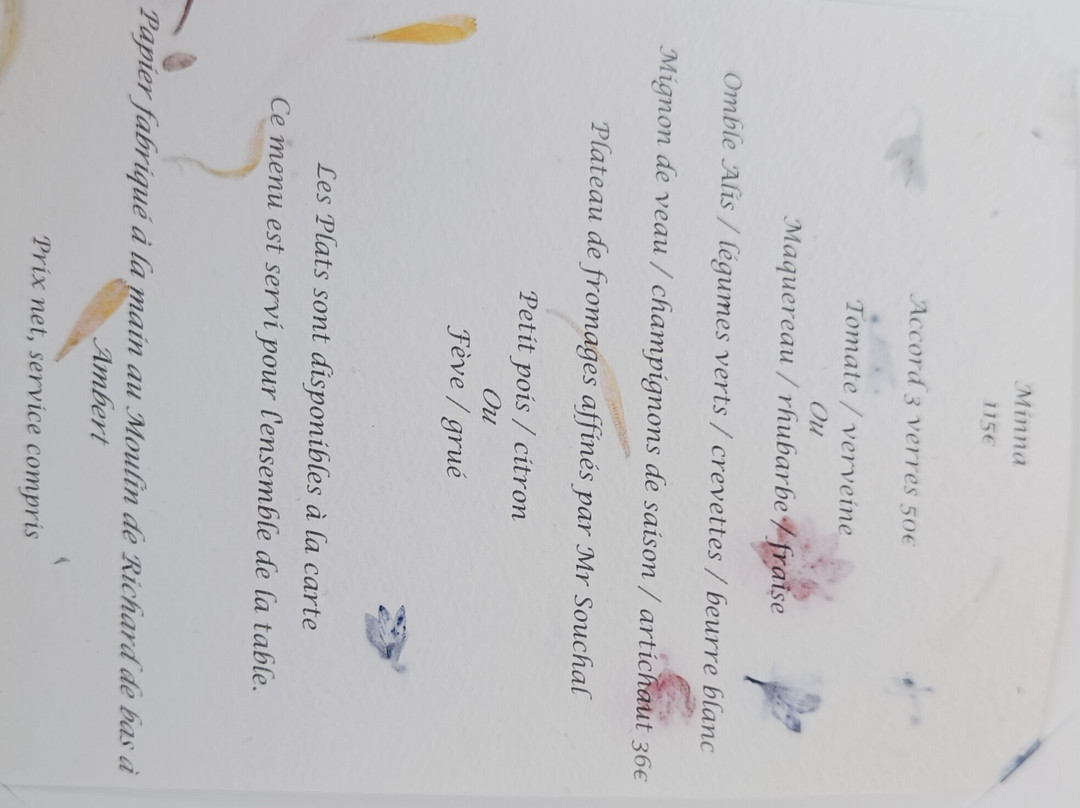 Minna
115€
Accord 3 verres 50€
Tomate / verveine
Ou
Maquereau / rhubarbe / fraise
Omble Alis / légumes verts / crevettes / beurre blanc
Mignon de veau / champignons de saison / artichaut 36€
Plateau de fromages affinés par Mr Souchal
Petit pois / citron
Ou
Fève / grué
Les Plats sont disponibles à la carte
Ce menu est servi pour l'ensemble de la table.
Papier fabriqué à la main au Moulin de Richard de bas à
Ambert
Prix net, service compris